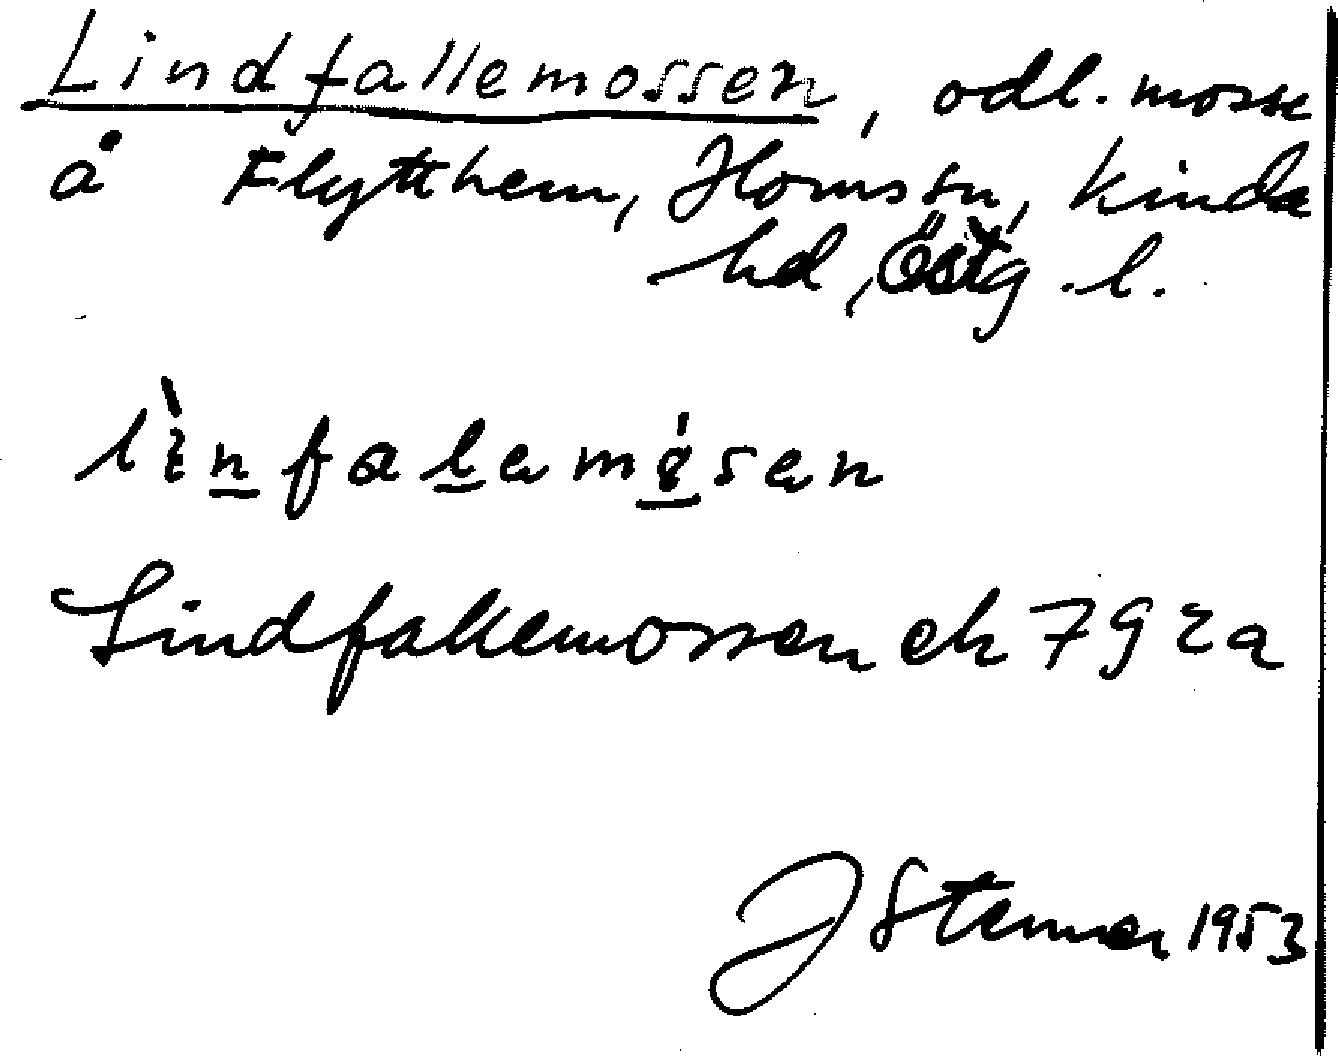 Lindfallemossen, odl. mosse
å Flytthem, Horns sn, Kinda
hd, Östg. l.
lìnfalamósan
Lindfallemossen ek 79 2a
J Stenner 1953